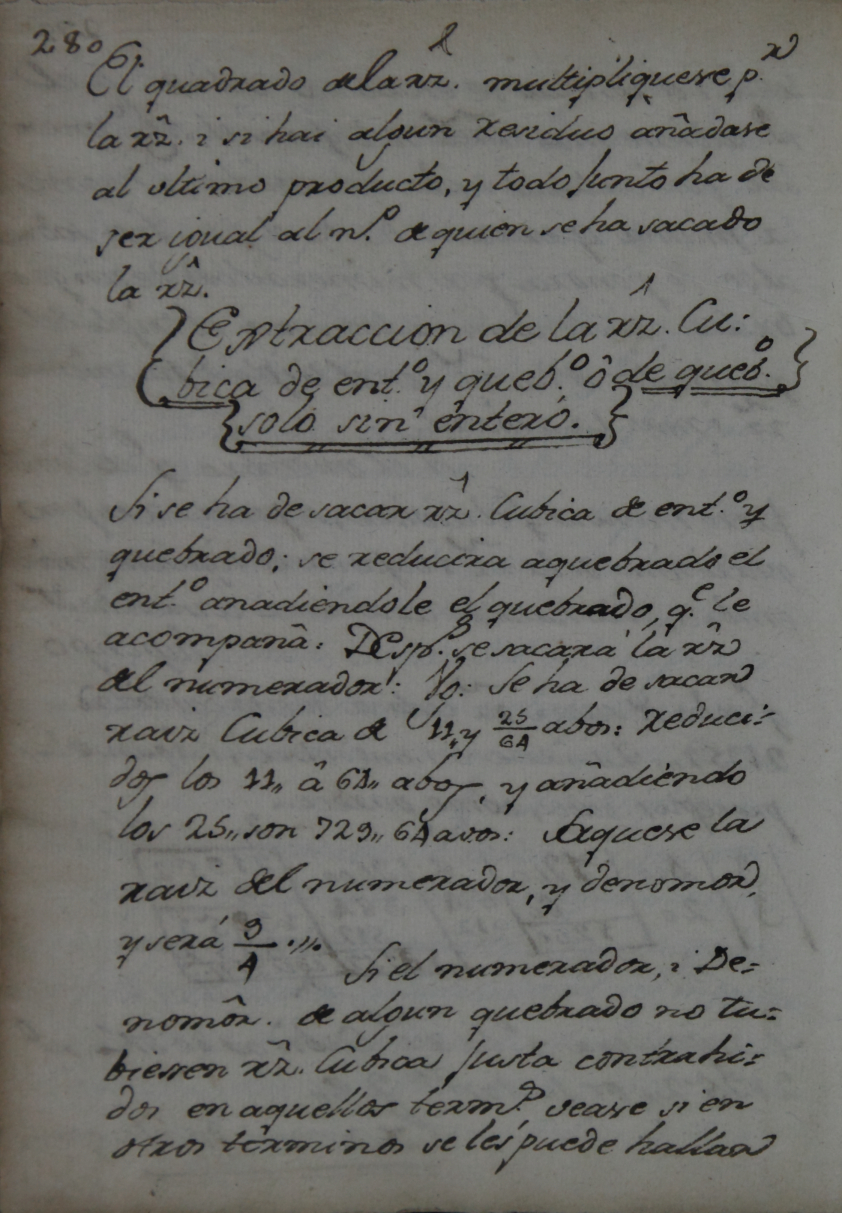 280
El quadrado de la rz. multipliquese p.r
la rz̃. i si hai algun residuo añadase
al ultimo producto, y todo junto ha de
ser igual al n.º de quien se ha sacado
la rẑ.
Extraccion de la rẑ. Cu:
bica de ent.º y queb.º ô de queb.º
solo sin entero.
Si se ha de sacar rẑ. Cubica de ent.º y
quebrado; se reducira aquebrado el
ent.º anadiendole el quebrado, q.e le
acompanâ: Desp.s se sacará la rẑ
del numerador: Vg: Se ha de sacar
raiz Cubica de 11,, y 25/64 abos: Reduci-
dos los 11,, â 64,, abos, y añadiendo
los 25,, son 729,, 64 avos: Saquese la
raiz del numerador, y denomor,
y será 9/4.,,
Si el numerador, i De=
nomôr. de algun quebrado no tu=
biesen rẑ. Cubica justa contrahi=
dos en aquellos term.s vease si en
otros têrminos se les puede hallar